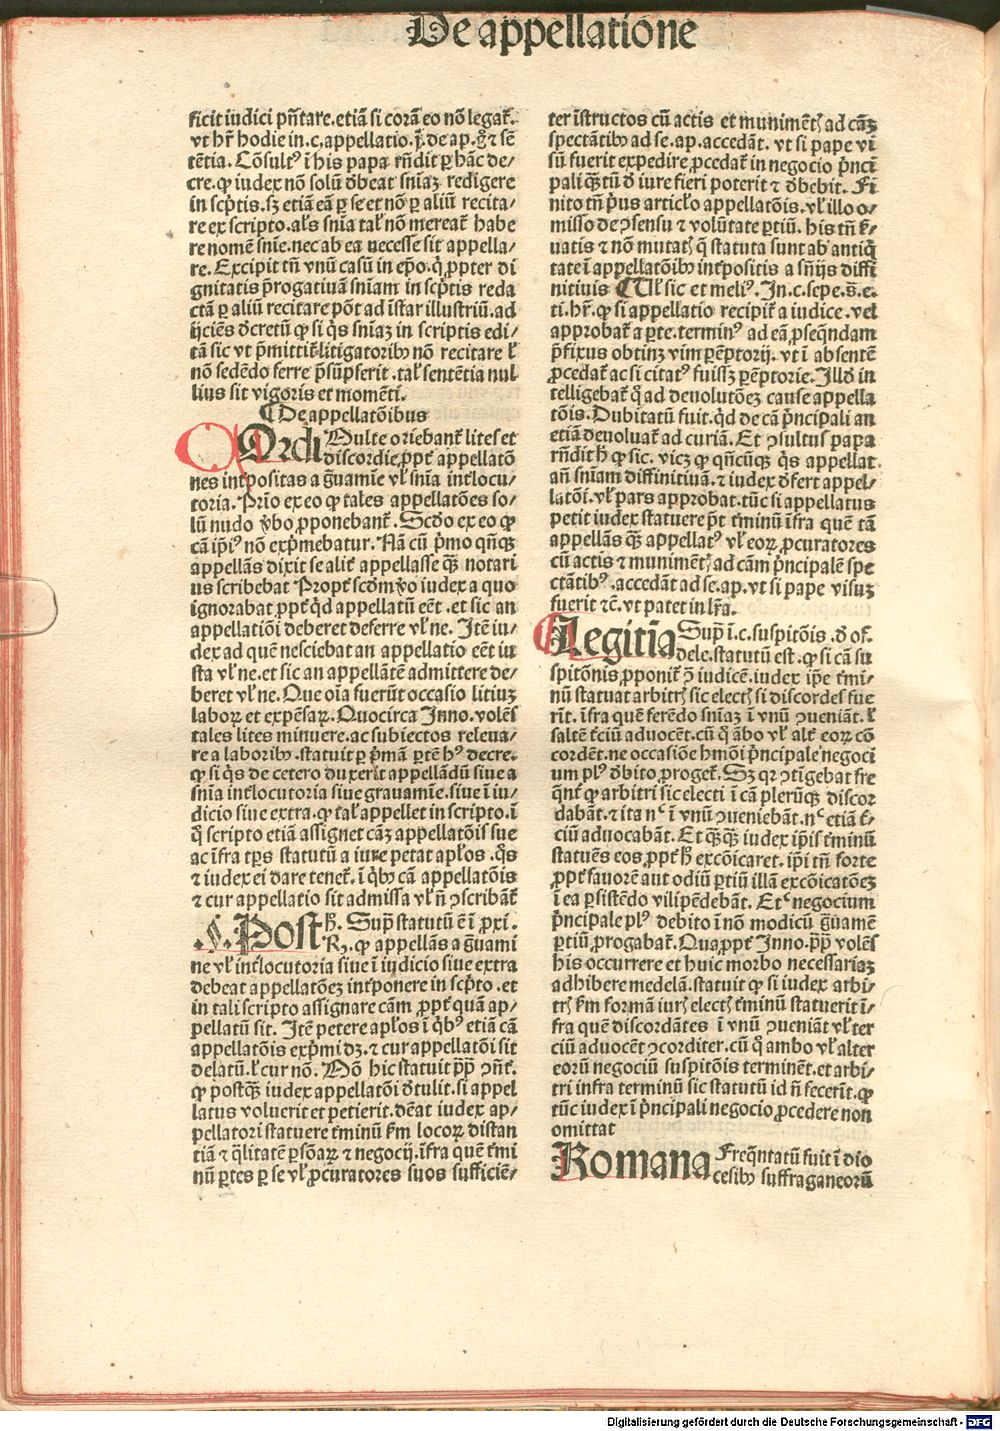 De appellatione
ficit iudici pn̄tare.etiā si corā eo nō legat̄.
vt hr̄ hodie in.c.appellatio.j̄.de ap. ꝯ̄ ⁊ sē
tētia. Cōsult⁹ ī his papa rn̄dit ꝑ hāc de/
cre. ꝙ iudex nō solū d̄beat sn̄iaꝫ redigere
in scp̄tis.sꝫ etiā eā ꝑ se et nō ꝑ aliū recita/
re ex scripto.al̄s sn̄ia tal̄ nō mereat̄ habe
re nomē sn̄ie.nec ab ea necesse sit appella/
re. Excipit tn̄ vnū casū in ep̄o.q̄ ꝓpter di
gnitatis p̄rogatiuā sn̄iam in scp̄tis reda
ctā ꝑ aliū recitare pōt ad īstar illustriū.ad
ijciēs d̄cretū ꝙ si q̄s sn̄iaꝫ in scriptis edi/
tā sic vt p̄mittit̄ litigatoribꝫ nō recitare ł
nō sedēdo ferre p̄sūpserit.tal̄ sentētia nul
lius sit vigoris et momēti.
¶ De appellatōibus
Ordi Multe oriebant̄ lites et
discordie ꝓpt̄ appellatō
nes int̄positas a ḡuamīe vł sn̄ia int̄locu/
toria. Prīo ex eo ꝙ tales appellatōes so/
lū nudo v̄bo ꝓponebant̄. Scd̄o ex eo ꝙ
cā ip̄i⁹ nō exp̄mebatur. Nā cū p̄mo qn̄qꝫ
appellās dixit se alit̄ appellasse qꝫ notari
us scribebat Propt̄ scdm̄ v̄o iudex a quo
ignorabat ꝓpt̄ qd̄ appellatū eēt.et sic an
appellatiōi deberet deferre vł ne. Itē iu/
dex ad quē nesciebat an appellatio eēt iu
sta vł ne.et sic an appellātē admittere de/
beret vł ne. Que oīa fuerūt occasio litiuꝫ
laboꝝ et expēsaꝝ. Quocirca Inno. volēs
tales lites minuere.ac subiectos releua/
re a laboribꝫ.statuit ꝑ p̄mā ꝑtē h⁹ decre.
ꝙ si q̄s de cetero duxerit appellādū siue a
sn̄ia int̄locutoria siue grauamīe.siue ī iu/
dicio siue extra.ꝙ tal̄ appellet in scripto.ī
q̄ scripto etiā assignet cāꝫ appellatōis sue
ac īfra tꝑs statutū a iure petat apłos.q̄s
⁊ iudex ei dare tenet̄. ī q̄bꝫ cā appellatōis
⁊ cur appellatio sit admissa vł n̄ ꝯscribāt̄
.§. Post h̄. Sup̄ statutū ē ī ꝓxi.
R. ꝙ appellās a ḡuami
ne vł int̄locutoria siue ī iudicio siue extra
debeat appellatōeꝫ int̄ponere in scp̄to.et
in tali scripto assignare cām ꝓpt̄ quā ap/
pellatū sit. Itē petere apłos ī q̄b⁹ etiā cā
appellatōis exp̄mi dꝫ.⁊ cur appellatōi sit
delatū.ł cur nō. Mō hic statuit pp̄ ꝯn̄t̄.
ꝙ postqꝫ iudex appellatōi d̄tulit.si appel
latus voluerit et petierit.dēat iudex ap/
pellatori statuere t̄minū km̄ locoꝝ distan
tiā ⁊ q̄litatē ꝑsōaꝝ ⁊ negocij.īfra quē t̄mi
nū ꝑtes ꝑ se vł ꝓcuratores suos sufficiē/
ter īstructos cū actis et munimēt̄ ad cāꝫ
spectātibꝫ ad se.ap.accedāt. vt si pape vi
sū fuerit expedire ꝓcedat̄ in negocio p̄nci
pali qꝫtū d̄ iure fieri poterit ⁊ d̄bebit. Fi
nito tn̄ p̄us articlo appellatōis.vł illo o/
misso de ꝯsensu ⁊ volūtate ꝑtiū. his tn̄ s̄/
uatis ⁊ nō mutat̄ q̄ statuta sunt ab antiq̄
tate ī appellatōibꝫ int̄positis a sn̄ijs diffi
nitiuis ¶ Vł sic et meli⁹. In.c.sepe.s̄.e.
ti.hr̄.ꝙ si appellatio recipit̄ a iudice.vel
approbat̄ a ꝑte.termin⁹ ad eā ꝓseq̄ndam
p̄fixus obtinꝫ vim ꝑēptorij. vt ī absentē
ꝓcedat̄ ac si citat⁹ fuissꝫ ꝑēptorie. Illd̄ in
telligebat̄ q̄ ad deuolutōeꝫ cause appella
tōis. Dubitatū fuit. qd̄ de cā p̄ncipali an
etiā deuoluat̄ ad curiā. Et ꝯsultus papa
rn̄dit h̄ ꝙ sic. vicꝫ ꝙ qn̄cūqꝫ q̄s appellat.
an̄ sn̄iam diffinitiuā.⁊ iudex d̄fert appel/
latōi.vł pars approbat.tūc si appellatus
petit iudex statuere p̄t t̄minū īfra quē tā
appellās qꝫ appellat⁹ vł eoꝝ ꝓcuratores
cū actis ⁊ munimēt̄ ad cām p̄ncipalē spe
ctātib⁹.accedāt ad se.ap.vt si pape visuꝫ
fuerit ⁊c̄.vt patet in lr̄a.
Legitīa Sup̄ ī.c.suspitōis.d̄ of.
dele.statutū est.ꝙ si cā su
spitōnis ꝓponit̄ ꝯ iudicē.iudex ip̄e t̄mi/
nū statuat arbitr̄ sic elect̄ si discordes fue
rīt.īfra quē ferēdo sn̄iaꝫ ī vnū ꝯueniāt. ł
saltē t̄ciū aduocēt.cū q̄ ābo vł alt̄ eoꝝ cō
cordēt.ne occasiōe hmōi p̄ncipale negoci
um pl⁹ d̄bito ꝓroget̄. Sꝫ qꝛ ꝯtīgebat fre
q̄nt̄ ꝙ arbitri sic electi ī cā plerūqꝫ discor
dabāt.⁊ ita nᶜ ī vnū ꝯueniebāt.nᶜ etiā t̄/
ciū aduocabāt. Et qꝫqꝫ iudex ip̄is t̄minū
statuēs eos ꝓpt̄ h̄ excōicaret.ip̄i tn̄ forte
ꝓpt̄ fauorē aut odiū ꝑtiū illā excōicatōeꝫ
ī ea ꝑsistēdo vilipēdebāt. Etᶜ negocium
p̄ncipale pl⁹ debito ī nō modicū ḡuamē
ꝑtiū ꝓrogabat̄. Quaꝓpt̄ Inno. pp̄ volēs
his occurrere et huic morbo necessariaꝫ
adhibere medelā.statuit ꝙ si iudex arbi/
tr̄ km̄ formā iur̄ elect̄ t̄minū statuerit ī/
fra quē discordātes ī vnū ꝯueniāt vł ter
ciū aduocēt ꝯcorditer.cū q̄ ambo vł alter
eorū negociū suspitōis terminēt.et arbi/
tri infra terminū sic statutū id n̄ fecerīt.ꝙ
tūc iudex ī p̄ncipali negocio ꝓcedere non
omittat
Romana Freq̄ntatū fuit ī dio
cesibꝫ suffraganeorū
Digitalisierung gefördert durch die Deutsche Forschungsgemeinschaft - DFG